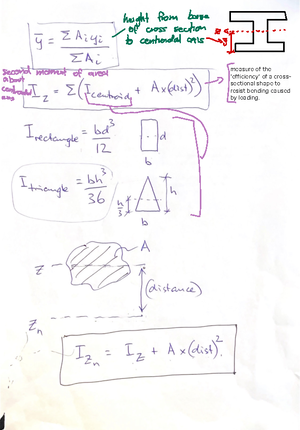 ȳ = ΣAᵢyᵢ / ΣAᵢ
height from base
of cross section
to centroidal axis
second moment of area
about
centroidal
axis
I_z = Σ(I_centroidy + A×(dist)²)
measure of the
'efficiency' of a cross-
sectional shape to
resist bending caused
by loading.
I_rectangle = bd³ / 12
d
b
I_triangle = bh³ / 36
h
h/3
b
A
z
(distance)
Z_n
I_Zn = I_Z + A×(dist)².